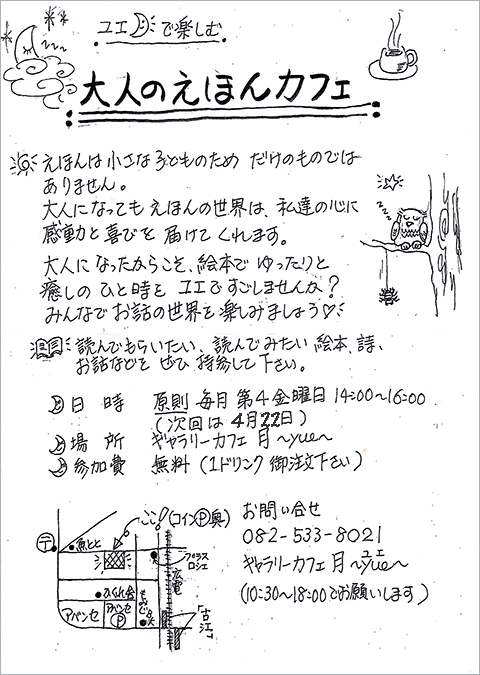 ユエ で楽しむ
大人のえほんカフェ
えほんは小さな子どものため だけのものでは
ありません。
大人になっても えほんの世界は、私達の心に
感動と喜びを 届けてくれます。
大人になったからこそ、絵本で ゆったりと
癒しの ひと時を ユエですごしませんか?
みんなで お話の世界を 楽しみましょう♡
読んでもらいたい、読んでみたい 絵本、詩、
お話などを ぜひ 持参して下さい。
日 時 原則 毎月 第4金曜日 14:00~16:00
(次回は 4月22日)
場 所 ギャラリーカフェ 月 ~yue~
参加費 無料 (1ドリンク 御注文下さい)
ここ! (コインⓅ奥)
〒
魚とと
プラス
ロシェ
広電
アバンセ
アバンセ
Ⓟ
「古江」
お問い合せ
082-533-8021
ギャラリーカフェ 月 ~yue~
ユエ
(10:30~18:00でお願いします)